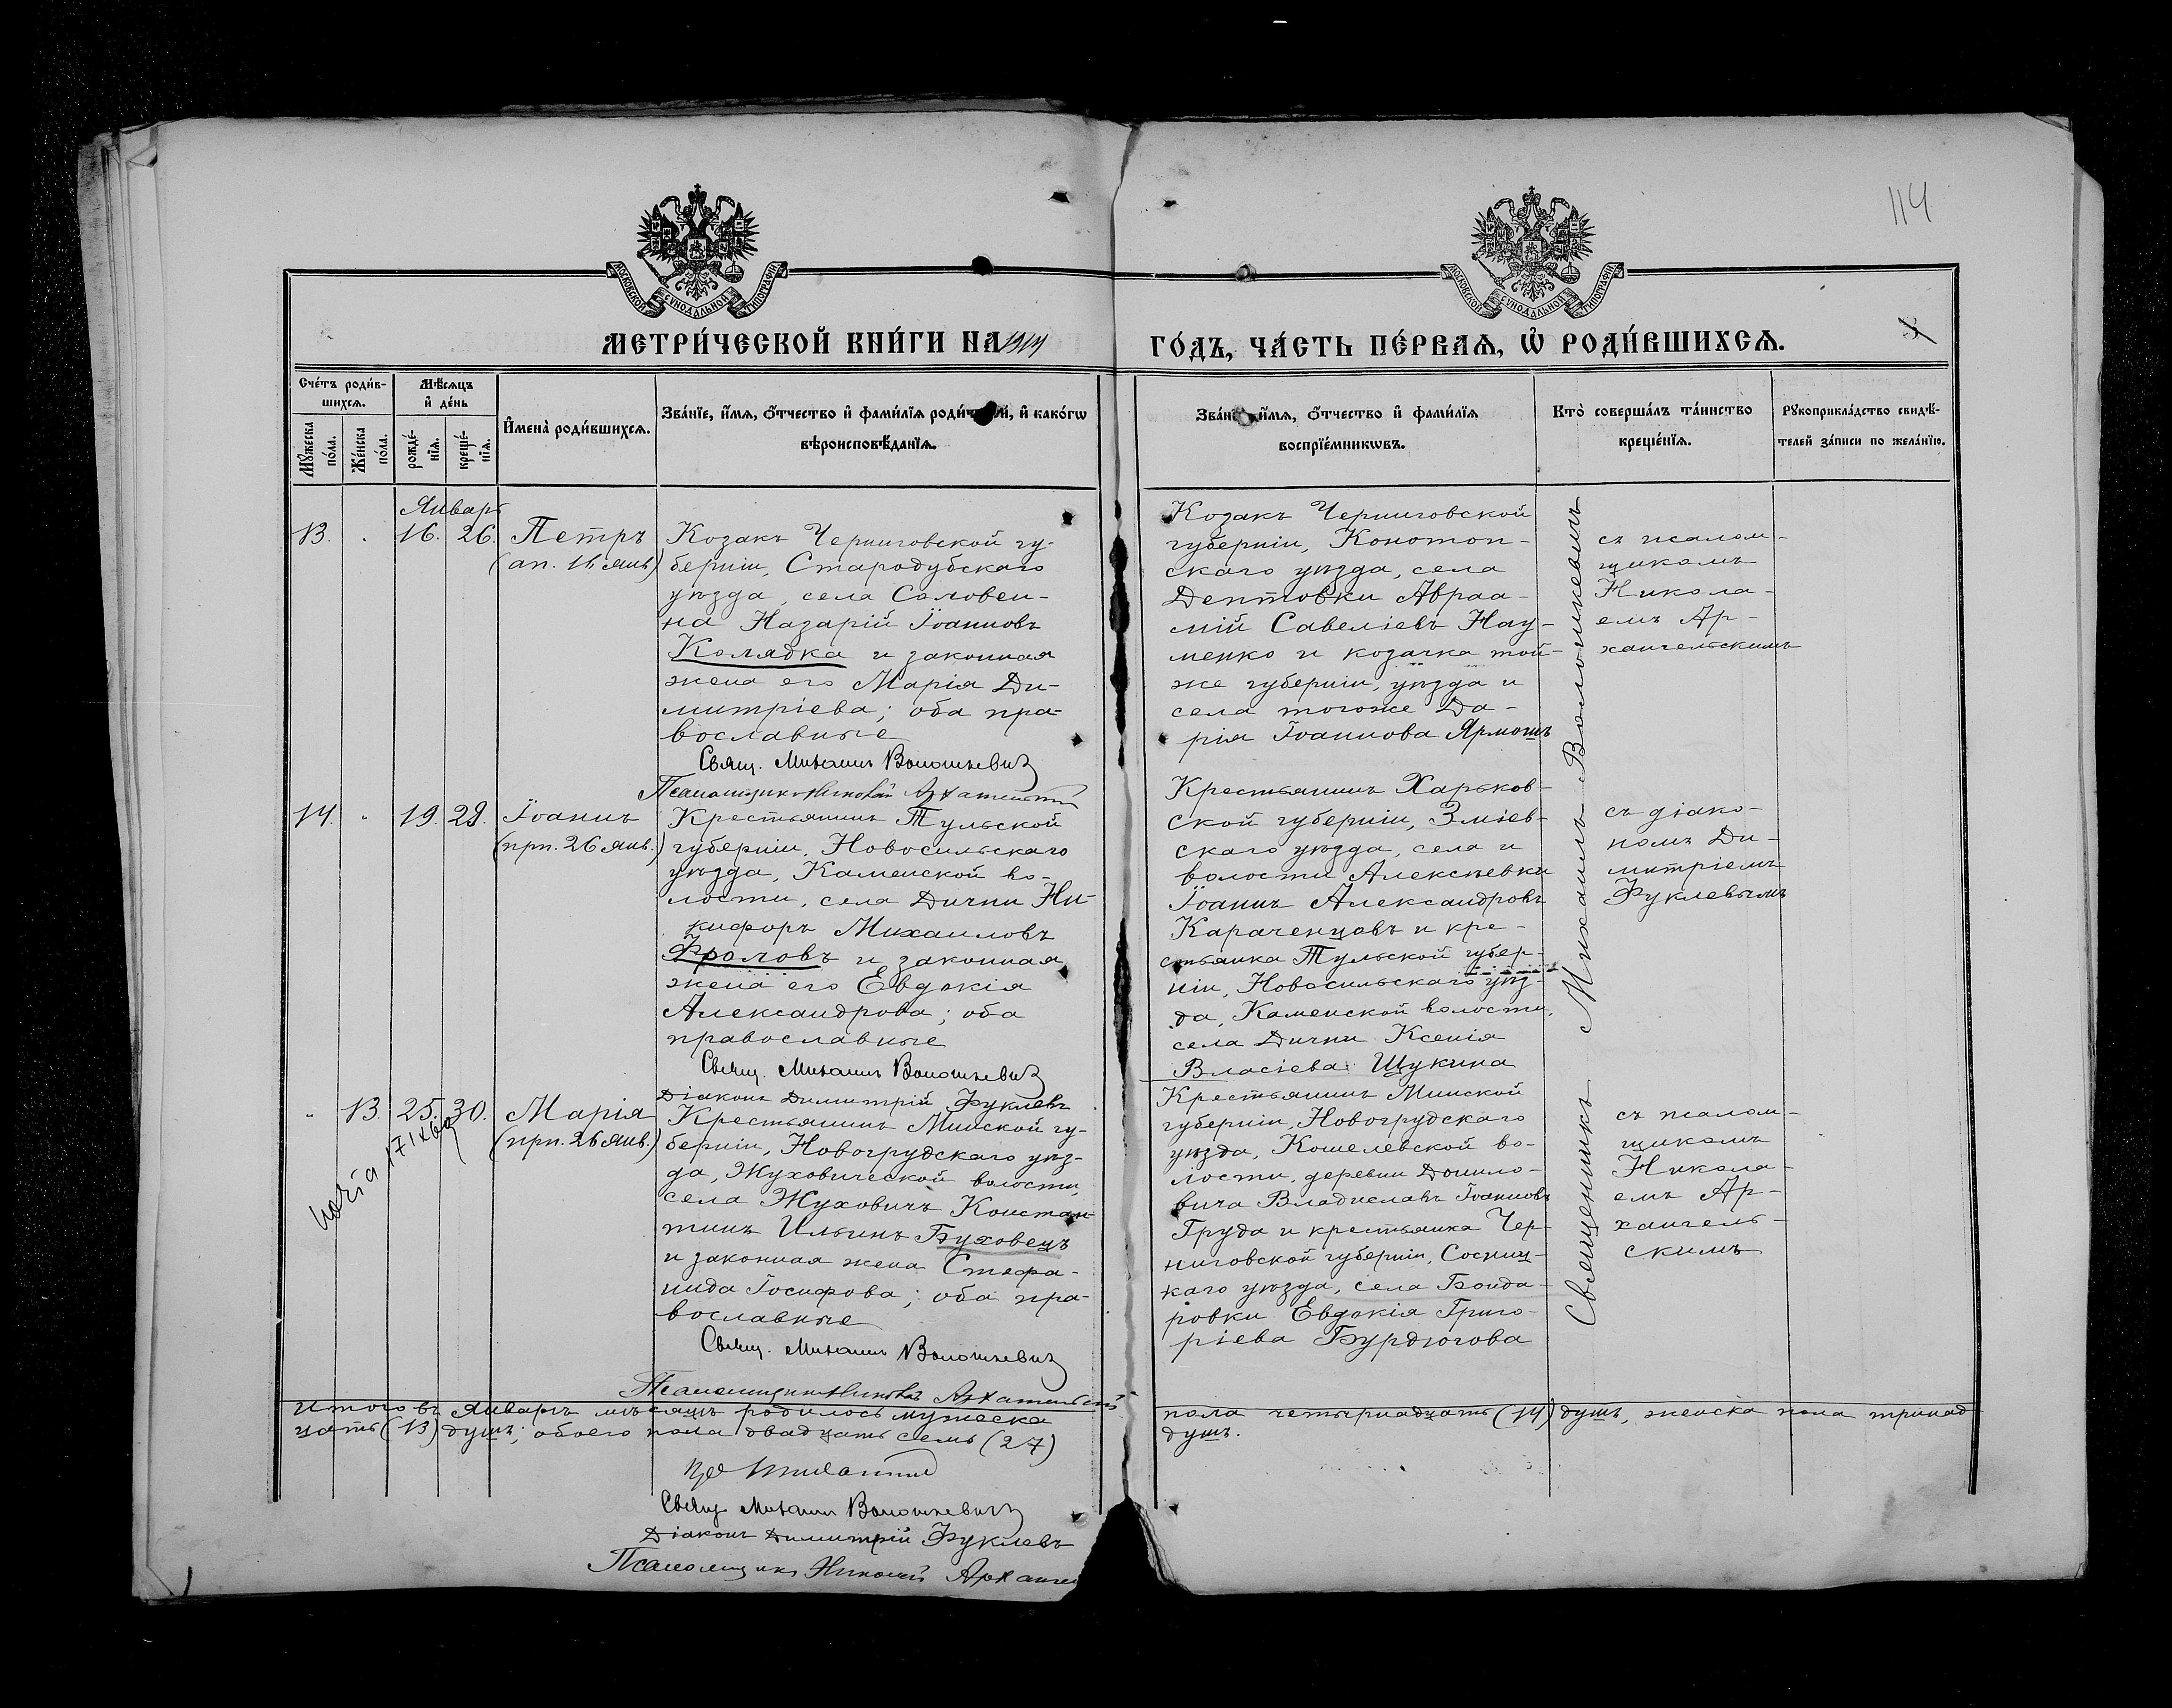 114
МОСКОВСКОЙ СѴНОДАЛЬНОЙ ТИПОГРАФІИ
МОСКОВСКОЙ СѴНОДАЛЬНОЙ ТИПОГРАФІИ
МЕТРИ́ЧЕСКОЙ КНИ́ГИ НА 1914
ГО́ДЪ, ЧА́СТЬ ПЕ́РВАЯ, Ѡ҆ РОДИ́ВШИХСѦ.
Сче́тъ роди́в-
шихсѧ.
Мꙋ́жеска по́ла.
Же́нска по́ла.
Мѣ́сѧцъ
и҆ де́нь
рожде́-нїѧ.
креще́-нїѧ.
И҆мена̀ роди́вшихсѧ.
Зва́нїе, и҆́мѧ, ѻ҆́тчество и҆ фами́лїѧ роди́телей, и҆ како́гѡ
вѣроисповѣ́данїѧ.
Зва́нїе, и҆́мѧ, ѻ҆́тчество и҆ фами́лїѧ
воспрїе́мникѡвъ.
Кто̀ соверша́лъ та́инство
креще́нїѧ.
Рꙋкоприкла́дство свидѣ́-
телей за́писи по жела́нїю.
Январь
13. 16. 26. Петръ
(ап. 16 янв.)
Козакъ Черниговской гу-
берніи, Стародубскаго
уѣзда, села Соловьи-
на Назарій Іоанновъ
Колядка и законная
жена его Марія Ди-
митріева; оба пра-
вославные
Свящ. Михаилъ Волошкевичъ
Псаломщикъ Николай Архангельскій
Козакъ Черниговской
губерніи, Конотоп-
скаго уѣзда, села
Дептовки Авраа-
мій Савеліевъ Нау-
менко и козачка той-
же губерніи, уѣзда и
села тогоже Да-
рія Іоаннова Ярмошъ
Священникъ Михаилъ Волошкевичъ
съ псалом-
щикомъ
Никола-
емъ Ар-
хангельскимъ
14. " 19. 28. Іоаннъ
(прп. 26 янв.)
Крестьянинъ Тульской
губерніи, Новосильскаго
уѣзда, Каменской во-
лости, села Дични Ни-
кифоръ Михаиловъ
Фроловъ и законная
жена его Евдокія
Александрова; оба
православные
Свящ. Михаилъ Волошкевичъ
Діаконъ Димитрій Фуклевъ
Крестьянинъ Харьков-
ской губерніи, Зміев-
скаго уѣзда, села и
волости Алексѣевки
Іоаннъ Александровъ
Караченцовъ и кре-
стьянка Тульской губер-
ніи, Новосильскаго уѣз-
да, Каменской волости,
села Дични Ксенія
Власіева Щукина
съ діако-
номъ Ди-
митріемъ
Фуклевымъ
" 13. 25. 30. Марія
(прп. 26 янв.)
Крестьянинъ Минской гу-
берніи, Новогрудскаго уѣз-
да, Жуховической волости,
села Жуховичъ Констан-
тинъ Ильинъ Буховецъ
и законная жена Стефа-
нида Іосифова; оба пра-
вославные
Свящ. Михаилъ Волошкевичъ
Псаломщикъ Николай Архангельскій
Крестьянинъ Минской
губерніи, Новогрудскаго
уѣзда, Кошелевской во-
лости, деревни Данило-
вича Владиславъ Іоанновъ
Груда и крестьянка Чер-
ниговской губерніи, Сосниц-
каго уѣзда, села Бонда-
ровки Евдокія Григо-
ріева Бурдюгова
съ псалом-
щикомъ
Никола-
емъ Ар-
хангель-
скимъ
Итого въ Январѣ мѣсяцѣ родилось мужеска пола четырнадцать (14) душъ, женска пола тринад
цать (13) душъ; обоего пола двадцать семь (27) душъ.
Свящ. Михаилъ Волошкевичъ
Діаконъ Димитрій Фуклевъ
Псаломщикъ Николай Арханге